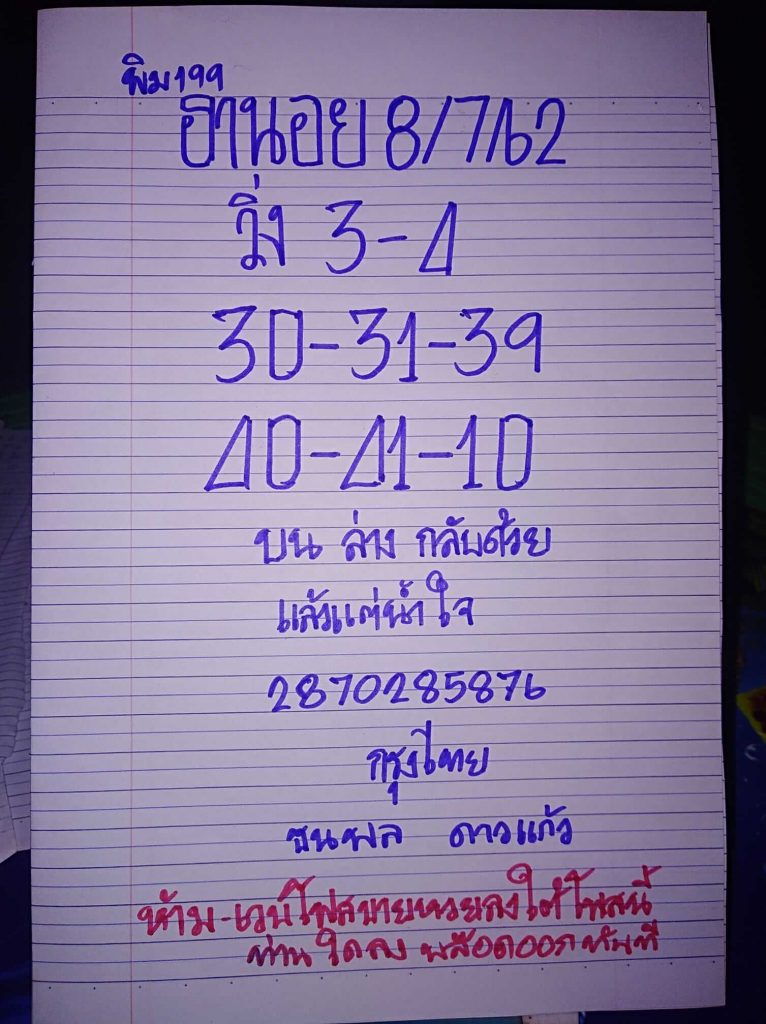 พิม199
ฮานอย 8/7/62
วิ่ง 3-4
30-31-39
40-41-10
บน ล่าง กลับด้วย
แล้วแต่น้ำใจ
2870285876
กรุงไทย
ชนพล ดาวแก้ว
ห้าม-เวปโฟสขายหวยลงใต้โพสนี้
ท่านใดลง บล๊อดออกทันที